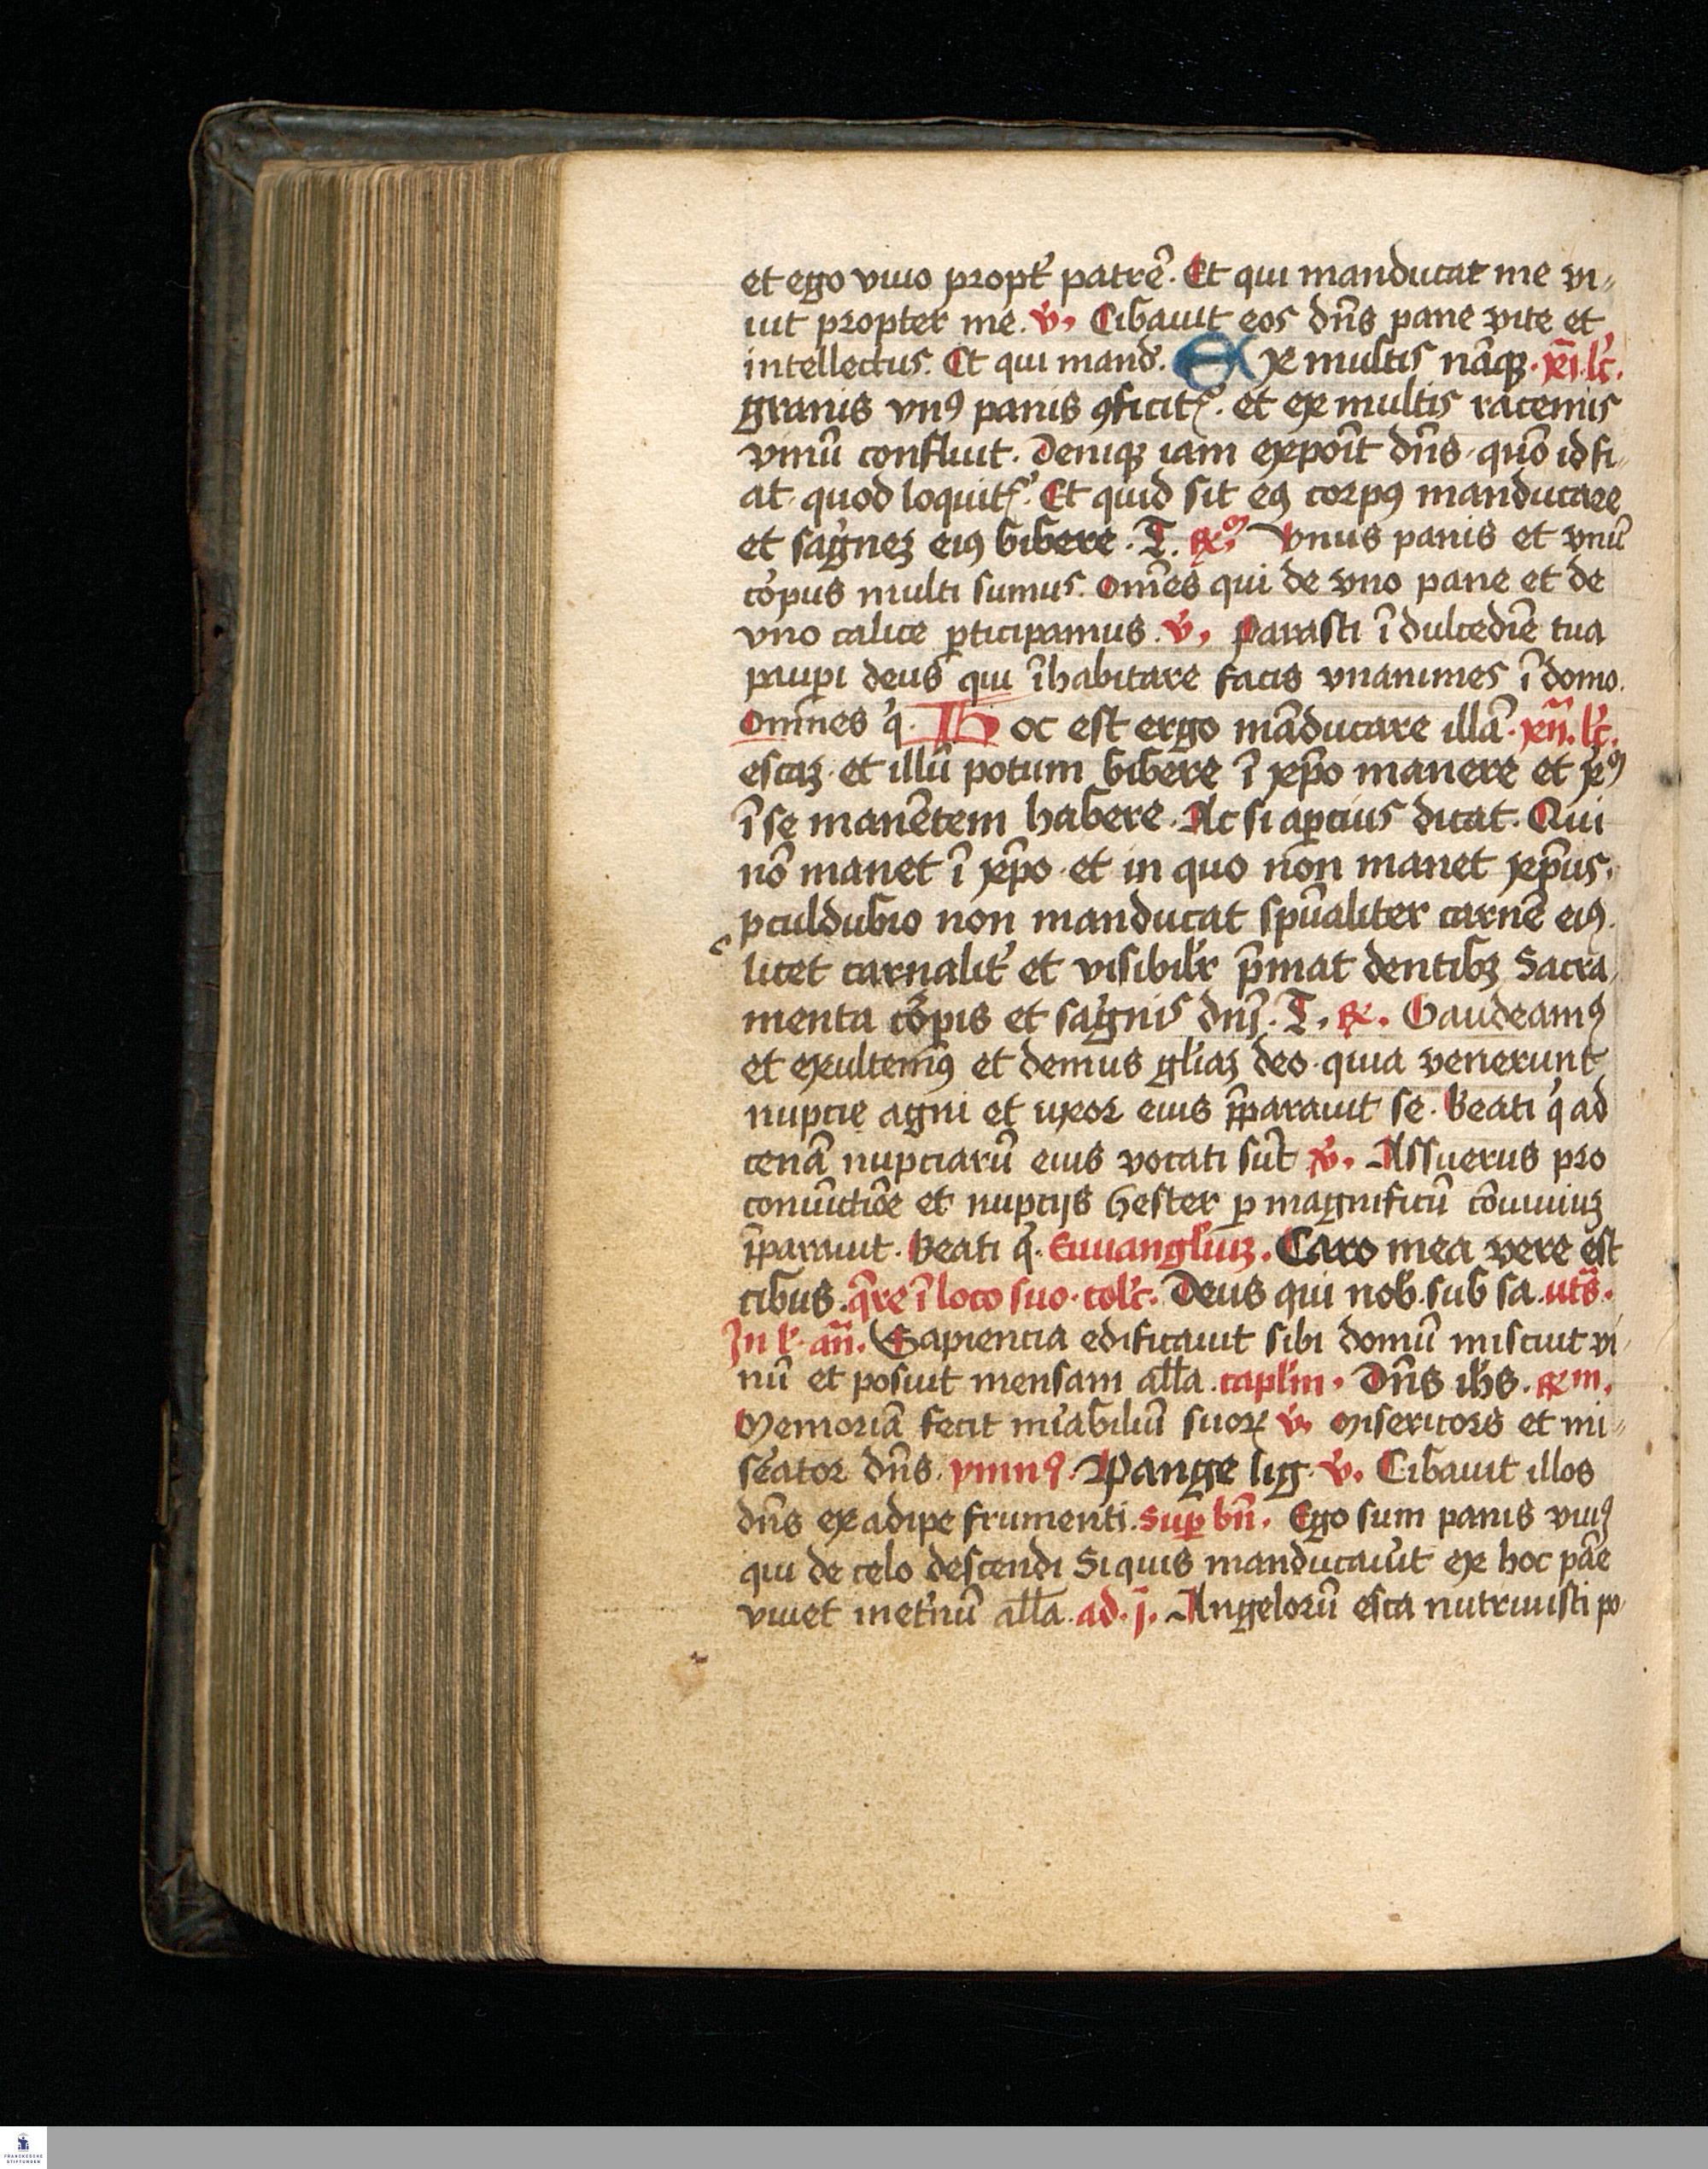 et ego viuo propt̉ patrē. Et qui manducat me vi„
uit propter me. v̉. Cibauit eos dn̄s pane vite et
intellectus. Et qui mand̉. Ex multis nāqꝫ. xi. lc̄.
granis vnꝰ panis ꝯficit᷑. et ex multis racemis
vinū confluit. Deniqꝫ iam expoīt dn̄s quō id fi„
at quod loquit᷑. Et quid sit eiꝰ corpꝰ manducare
et sāgneꝫ eiꝰ bibere. T. ℟. Vnus panis et vnū
cōpus multi sumus. om̄es qui de vno pane et de
vno calice ꝑticipamus. v̉. Parasti ī dulcedīe tua
pauꝑi deus qui īhabitare facis vnanimes ī domo.
Om̄nes q̉. Hoc est ergo māducare illā. xii. lc̄.
escaꝫ et illū potum bibere ī xp̄o manere et xp̄ꝫ
ī se manētem habere. Ac si aꝑcius dicat. Qui
nō manet ī xp̄o et in quo non manet xp̄us.
ꝓculdubio non manducat spūaliter carnē eiꝰ.
licet carnalit̉ et visibilr̉ p̄mat dentibꝫ Sacra„
menta cōꝑis et sāgnis dnī. T. ℟. Gaudeamꝰ
et exultemꝰ et demus gl̄iaꝫ deo quia venerunt
nupcie agni et uxor eius p̄parauit se. Beati q̉ ad
cenā nupciarū eius vocati sūt v̉. Assuerus pro
conūctiōe et nupcijs hester ꝑ magnificū cōuiuiuꝫ
p̄parauit. Beati q̉. Euuangl̄iuꝫ. Caro mea vere est
cibus. q̄re ī loco suo. colc̄. Deus qui nob̉. sub sa. uts̄.
In l̄. an̄. Sapiencia edificauit sibi domū miscuit vi„
nū et posuit mensam all̄a. capl̄m. Dn̄s ih̄s. ℟m.
Memoriā fecit mīabiliū suoꝝ v̉. Misericors et mi„
sēator dn̄s. ymnꝰ. Pange lig. v̉. Cibauit illos
dn̄s ex adipe frumenti. Suꝑ bn̄. Ego sum panis viuꝰ
qui de celo descendi Siquis manducau̓it ex hoc pāe
viuet inet̉nū all̄a. ad. j. Angelorū esca nutriuisti po„
FRANCKESCHE
STIFTUNGEN